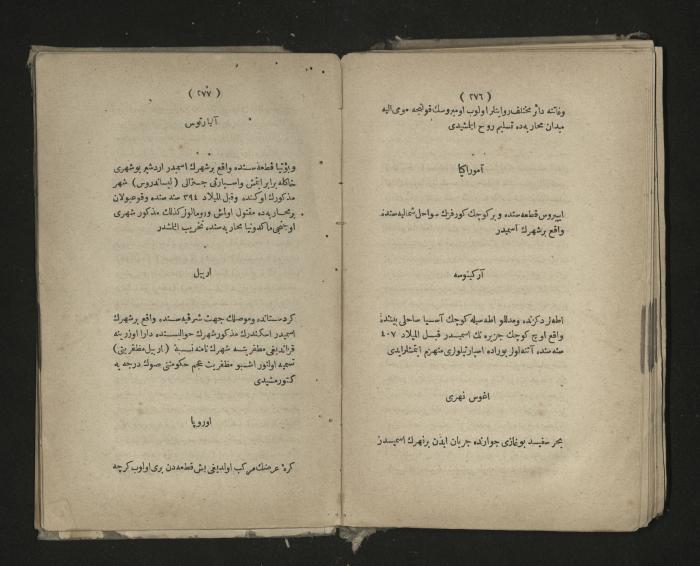 (٢٧٦)
وفاتنه دائر مختلف روايتلر اولوب اوميروسك قولنجه مومى اليه
ميدان محاربه ده تسليم روح ايلمشيدى
آموراكيا
ايپروس قطعه سنده و بر كوچك كورفزك سواحل شماليه سنده
واقع بر شهرك اسميدر
آركينوسه
اطه لر دكزنده ومدللو اطه سيله كوچك آسيا ساحلى بيننده
واقع اوچ كوچك جزيره نك اسميدر قبل الميلاد ٤٠٧
سنه سنده آتنه لولر بوراده اسپارتيلورى منهزم ايتمشلرايدى
اغوس نهرى
بحر سفيد بوغازى جوارنده جريان ايدن بر نهرك اسميدر
(٢٧٧)
آليارتوس
ويؤتيا قطعه سنده واقع بر شهرك اسميدر اردشير بو شهرى
خاكله برابر ايتمش واسپارتى جنرالى (ليساندروس) شهر
مذكورك اوكنده وقبل الميلاد ٣٩٤ سنه سنده وقوعبولان
بر محاربه ده مقتول اولمش ورومالولر كذلك مذكور شهرى
اوچنجى ماكدونيا محاربه سنده تخريب ايتمشلدر
اربيل
كردستانده وموصلك جهت شرقيه سنده واقع بر شهرك
اسميدر اسكندرك مذكور شهرك حواليسنده دارا اوزرينه
قزانديغى مظفريته شهرك نامنه نسبة (اربيل مظفريتى)
تسميه اولنور اشبو مظفريت عجم حكومتنى صوك درجه يه
كتورمشيدى
اوروپا
كرۀ عرضك مركب اولديغى بش قطعه دن برى اولوب كرچه